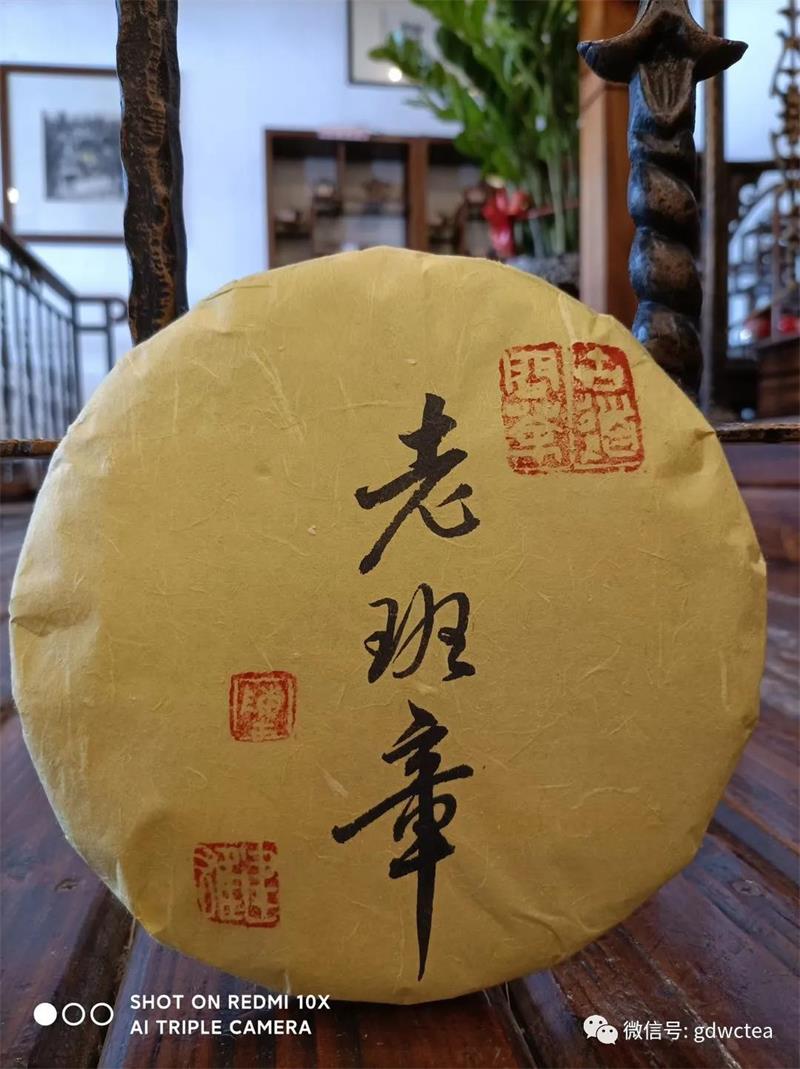 老班章
SHOT ON REDMI 10X
AI TRIPLE CAMERA
微信号: gdwctea